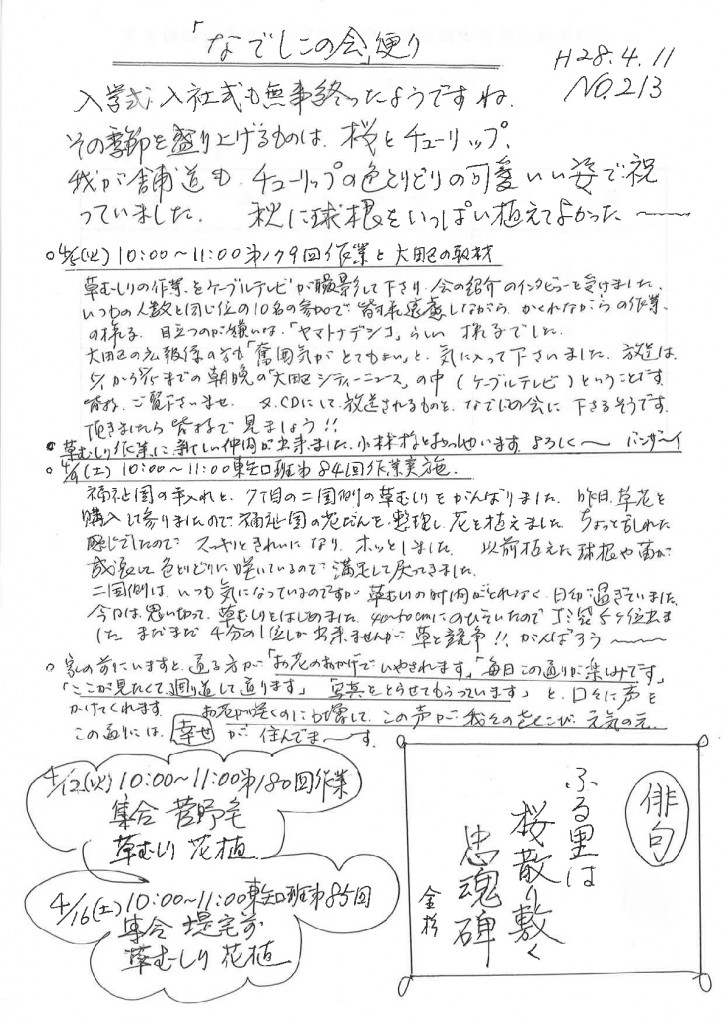 「なでしこの会」便り
H28.4.11
NO.213
入学式、入社式も無事終ったようですね。
その季節を盛り上げるものは、桜とチューリップ、
我が舗道も、チューリップの色とりどりの可愛いい姿で祝
っていました。 秋に球根をいっぱい植えてよかった〜
○4/5(火)10:00〜11:00第179回作業と大田区の取材
草むしりの作業をケーブルテレビが撮影して下さり、会の紹介のインタビューを受けました。
いつもの人数と同じ位の10名の参加で、皆様遠慮しながら、かくれながらの作業
の様子。目立つのが嫌いな、「ヤマトナデシコ」らしい様子でした。
大田区の広報係の方も「雰囲気がとてもよい」と、気に入って下さいました。放送は、
5/1から5/15までの朝晩の「大田区シティーニュース」の中(ケーブルテレビ)ということです。
皆様、ご覧下さいませ。又、CDにして放送されるものを、なでしこの会に下さるそうです。
頂きましたら皆様で見ましょう!!
○草むしり作業に新しい仲間が出来ました。小林様とおっしゃいます。よろしく〜 バンザーイ
○4/9(土)10:00〜11:00東矢口班第84回作業実施。
福祉園の手入れと、7丁目の二国側の草むしりをがんばりました。昨日、草花を
購入して参りましたので、福祉園の花だんを整理し、花を植えました。ちょっと乱れた
感じでしたので、スッキリときれいになり、ホッとしました。以前植えた球根や苗が
成長して色とりどりに咲いているので満足して戻ってきました。
二国側は、いつも気になっているのですが草むしりの時間がとれなく、日々が過ぎていました。
今日は、思い切って、草むしりをはじめました。40〜50cmにのびていたのでゴミ袋5ヶ位出ま
した。まだまだ4分の1位しか出来ませんが草と競争!!がんばろう〜
○家の前にいますと、通る方が「お花のおかげでいやされます」「毎日この通りが楽しみです」
「ここが見たくて、廻り道して通ります」「写真をとらせてもらっています」と、口々に声を
かけてくれます。 お花が咲くのにも増して、この声が我々のよろこび、元気の元。
この通りには、幸せが住んでま〜す。
4/12(火)10:00〜11:00第180回作業
集合 菅野宅
草むしり 花植
4/16(土)10:00〜11:00東矢口班第85回
集合 堤宅前
草むしり 花植
俳句
ふる里は
桜散り敷く
忠魂碑
金杉